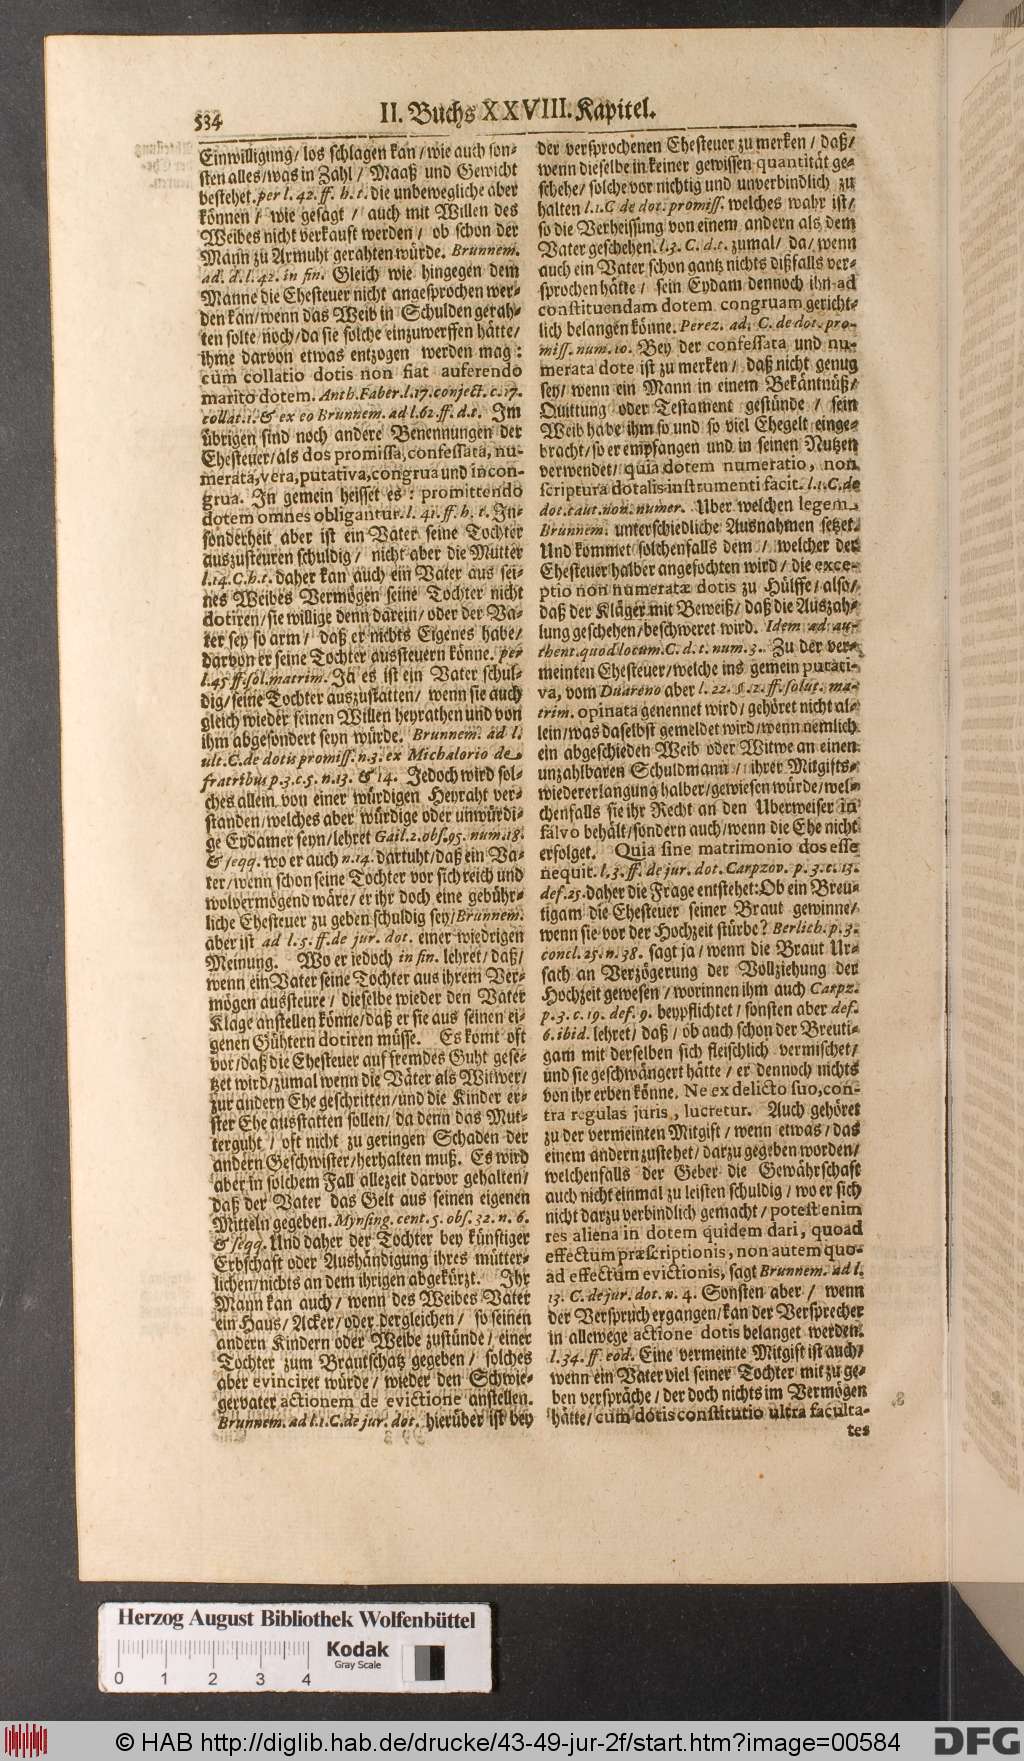 534
II. Buchs XXVIII. Kapitel.
Einwilligung/ los schlagen kan/ wie auch son-
sten alles/ was in Zahl/ Maaß und Gewicht
bestehet. per l. 42. ff. h. t. die unbewegliche aber
können/ wie gesagt/ auch mit Willen des
Weibes nicht verkauft werden/ ob schon der
Mann zu Armuht gerahten würde. Brunnem.
ad. d. l. 42. in fin. Gleich wie hingegen dem
Manne die Ehesteuer nicht angesprochen wer-
den kan/ wenn das Weib in Schulden gerah-
ten solte/ noch/ da sie solche einzuwerffen hätte/
ihme darvon etwas entzogen werden mag:
cùm collatio dotis non fiat auferendo
marito dotem. Anth. Faber. l. 17. conject. c. 17.
collat. 1. & ex eo Brunnem. ad l. 62. ff. d. t. Im
übrigen sind noch andere Benennungen der
Ehesteuer/ als dos promissa, confessata, nu-
merata, vera, putativa, congrua und incon-
grua. In gemein heisset es: promittendo
dotem omnes obligantur. l. 41. ff. h. t. In-
sonderheit aber ist ein Vater seine Tochter
auszusteuren schuldig/ nicht aber die Mutter
l. 14. C. h. t. daher kan auch ein Vater aus sei-
nes Weibes Vermögen seine Tochter nicht
dotiren/ sie willige denn darein/ oder der Va-
ter sey so arm/ daß er nichts Eigenes habe/
darvon er seine Tochter aussteuern könne. per
l. 45. ff. sol. matrim. Ja es ist ein Vater schul-
dig/ seine Tochter auszustatten/ wenn sie auch
gleich wieder seinen Willen heyrathen und von
ihm abgesondert seyn würde. Brunnem. ad l.
ult. C. de dotis promiss. n. 3. ex Michalorio de
fratribus p. 3. c. 5. n. 13. & 14. Jedoch wird sol-
ches allein von einer würdigen Heyraht ver-
standen/ welches aber würdige oder unwürdi-
ge Eydamer seyn/ lehret Gail. 2. obs. 95. num. 18.
& seqq. wo er auch n. 14. dartuht/ daß ein Va-
ter/ wenn schon seine Tochter vor sich reich und
wolvermögend wäre/ er ihr doch eine gebühr-
liche Ehesteuer zu geben schuldig sey/ Brunnem.
aber ist ad l. 5. ff. de jur. dot. einer wiedrigen
Meinung. Wo er iedoch in fin. lehret/ daß/
wenn ein Vater seine Tochter aus ihrem Ver-
mögen aussteure/ dieselbe wieder den Vater
Klage anstellen könne/ daß er sie aus seinen ei-
genen Gühtern dotiren müsse. Es komt oft
vor/ daß die Ehesteuer auf fremdes Guht gese-
tzet wird/ zumal wenn die Väter als Witwer/
zur andern Ehe geschritten/ und die Kinder er-
ster Ehe ausstatten sollen/ da denn das Mut-
terguht/ oft nicht zu geringen Schaden der
andern Geschwister/ herhalten muß. Es wird
aber in solchem Fall allezeit darvor gehalten/
daß der Vater das Gelt aus seinen eigenen
Mitteln gegeben. Mynsing. cent. 5. obs. 32. n. 6.
& seqq. Und daher der Tochter bey künftiger
Erbschaft oder Aushändigung ihres mütter-
lichen/ nichts an dem ihrigen abgekürzt. Ihr
Mann kan auch/ wenn des Weibes Vater
ein Haus/ Acker/ oder dergleichen/ so seinen
andern Kindern oder Weibe zustünde/ einer
Tochter zum Brautschatz gegeben/ solches
aber evinciret würde/ wieder den Schwie-
gervater actionem de evictione anstellen.
Brunnem. ad l. 1. C. de jur. dot. hierüber ist bey
der versprochenen Ehesteuer zu merken/ daß/
wenn dieselbe in keiner gewissen quantität ge-
schehe/ solche vor nichtig und unverbindlich zu
halten l. 1. C de dot. promiss. welches wahr ist/
so die Verheissung von einem andern als dem
Vater geschehen. l. 3. C. d. t. zumal/ da/ wenn
auch ein Vater schon gantz nichts dißfalls ver-
sprochen hätte/ sein Eydam dennoch ihn ad
constituendam dotem congruam gericht-
lich belangen könne. Perez. ad. C. de dot. pro-
miss. num. 10. Bey der confessata und nu-
merata dote ist zu merken/ daß nicht genug
sey/ wenn ein Mann in einem Bekäntnüß/
Quittung oder Testament gestünde/ sein
Weib habe ihm so und so viel Ehegelt einge-
bracht/ so er empfangen und in seinen Nutzen
verwendet/ quia dotem numeratio, non
scriptura dotalis instrumenti facit. l. 1. C. de
dot. caut. non. numer. Uber welchen legem
Brunnem. unterschiedliche Ausnahmen setzet.
Und kommet solchenfalls dem/ welcher der
Ehesteuer halber angefochten wird/ die exce-
ptio non numeratæ dotis zu Hülffe/ also/
daß der Kläger mit Beweiß/ daß die Auszah-
lung geschehen/ beschweret wird. Idem ad au-
thent. quod locum. C. d. t. num. 3. Zu der ver-
meinten Ehesteuer/ welche ins gemein putati-
va, vom Duareno aber l. 22. §. 12. ff. solut. ma-
trim. opinata genennet wird/ gehöret nicht al-
lein/ was daselbst gemeldet wird/ wenn nemlich
ein abgeschieden Weib oder Witwe an einen
unzahlbaren Schuldmann/ ihrer Mitgifts-
wiedererlangung halber/ gewiesen würde/ wel-
chenfalls sie ihr Recht an den Uberweiser in
salvo behält/ sondern auch/ wenn die Ehe nicht
erfolget. Quia sine matrimonio dos esse
nequit. l. 3. ff. de jur. dot. Carpzov. p. 3. c. 13.
def. 25. daher die Frage entstehet: Ob ein Breu-
tigam die Ehesteuer seiner Braut gewinne/
wenn sie vor der Hochzeit stürbe? Berlich. p. 3.
concl. 25. n. 38. sagt ja/ wenn die Braut Ur-
sach an Verzögerung der Vollziehung der
Hochzeit gewesen/ worinnen ihm auch Carpz.
p. 3. c. 19. def. 9. beypflichtet/ sonsten aber def.
6. ibid. lehret/ daß/ ob auch schon der Breuti-
gam mit derselben sich fleischlich vermischet/
und sie geschwängert hätte/ er dennoch nichts
von ihr erben könne. Ne ex delicto suo, con-
tra regulas juris, lucretur. Auch gehöret
zu der vermeinten Mitgift/ wenn etwas/ das
einem andern zustehet/ darzu gegeben worden/
welchenfalls der Geber die Gewährschaft
auch nicht einmal zu leisten schuldig/ wo er sich
nicht darzu verbindlich gemacht/ potest enim
res aliena in dotem quidem dari, quoad
effectum præscriptionis, non autem quo-
ad effectum evictionis, sagt Brunnem. ad l.
13. C. de jur. dot. n. 4. Sonsten aber/ wenn
der Verspruch ergangen/ kan der Versprecher
in allewege actione dotis belanget werden.
l. 34. ff. eod. Eine vermeinte Mitgift ist auch/
wenn ein Vater viel seiner Tochter mit zu ge-
ben verspräche/ der doch nichts im Vermögen
hätte/ cum dotis constitutio ultra faculta-
tes
Herzog August Bibliothek Wolfenbüttel
Kodak
Gray Scale
0 1 2 3 4
© HAB http://diglib.hab.de/drucke/43-49-jur-2f/start.htm?image=00584
DFG